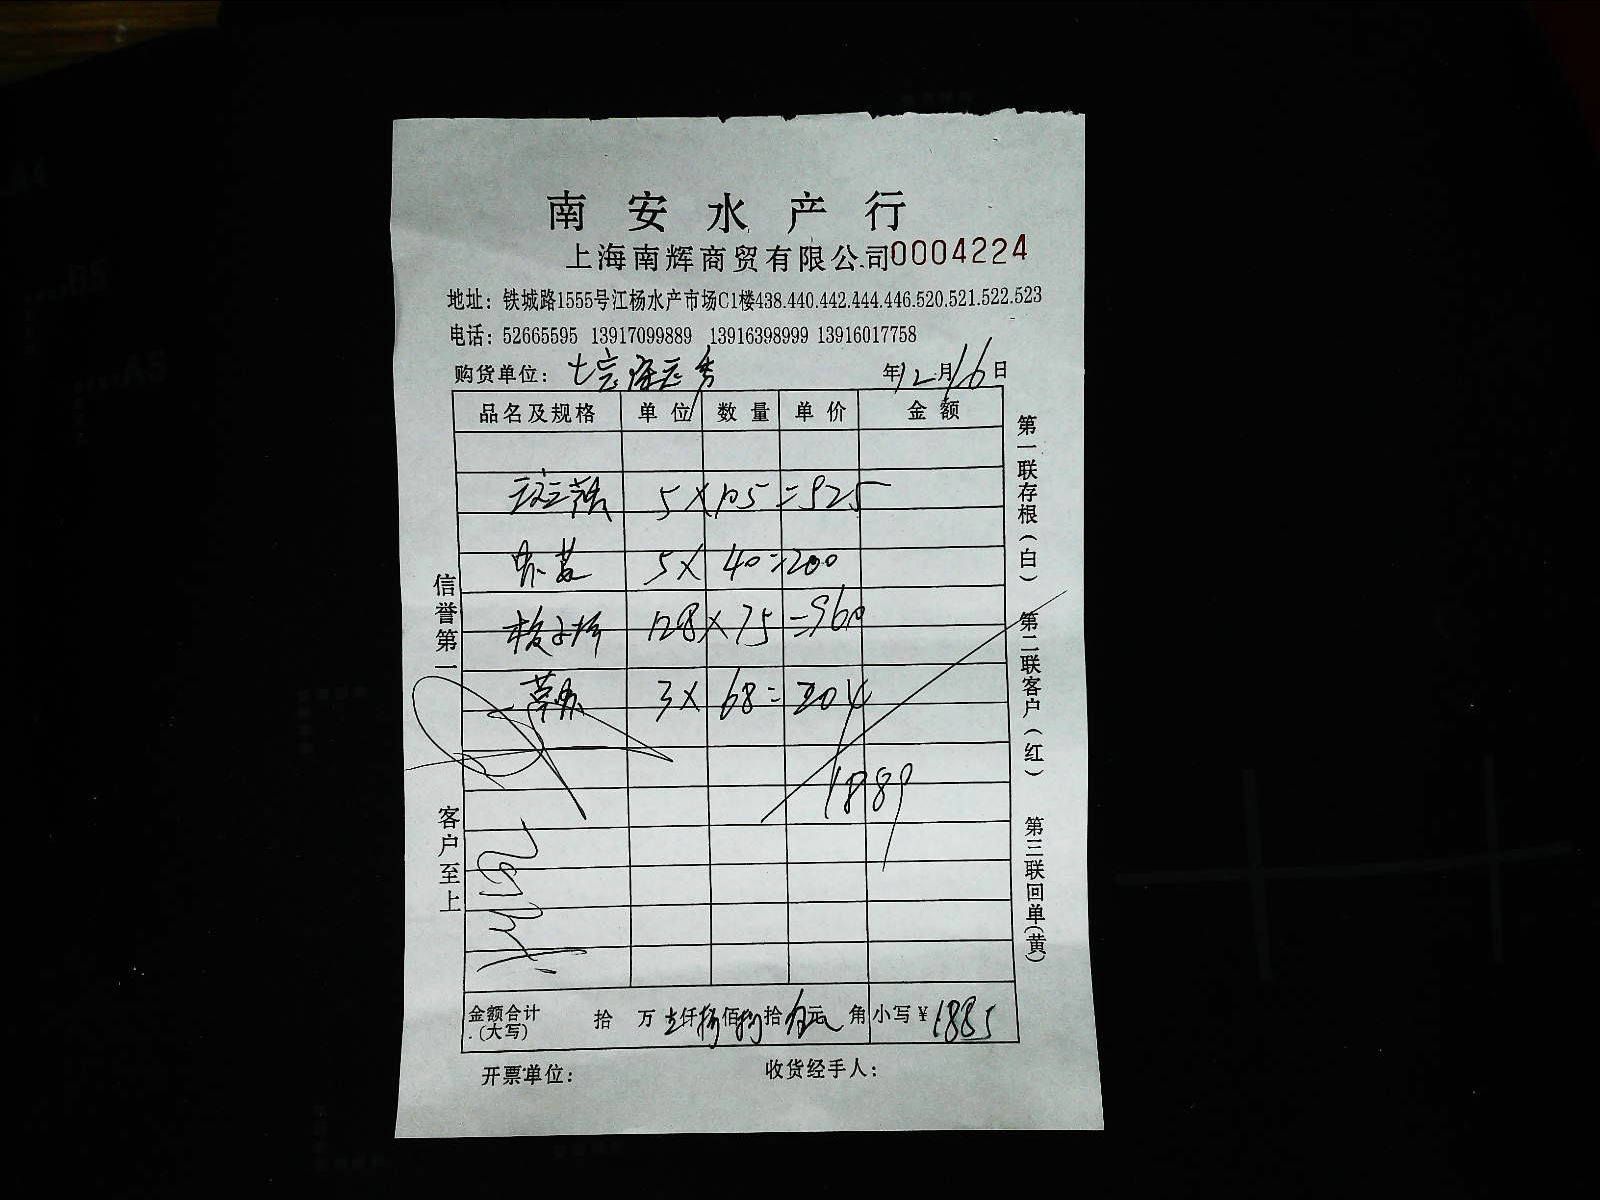 南安水产行
上海南辉商贸有限公司0004224
地址：铁城路1555号江杨水产市场C1楼438.440.442.444.446.520.521.522.523
电话：52665595 13917099889 13916398999 13916017758
购货单位：
年12月16日
品名及规格 单位 数量 单价 金额
5×105=525
5×40=200
128×75=960
3×68=204
1889
金额合计(大写) 拾 万 仟 佰 拾 元 角 小写¥1885
开票单位： 收货经手人：
信誉第一
客户至上
第一联存根(白)
第二联客户(红)
第三联回单(黄)